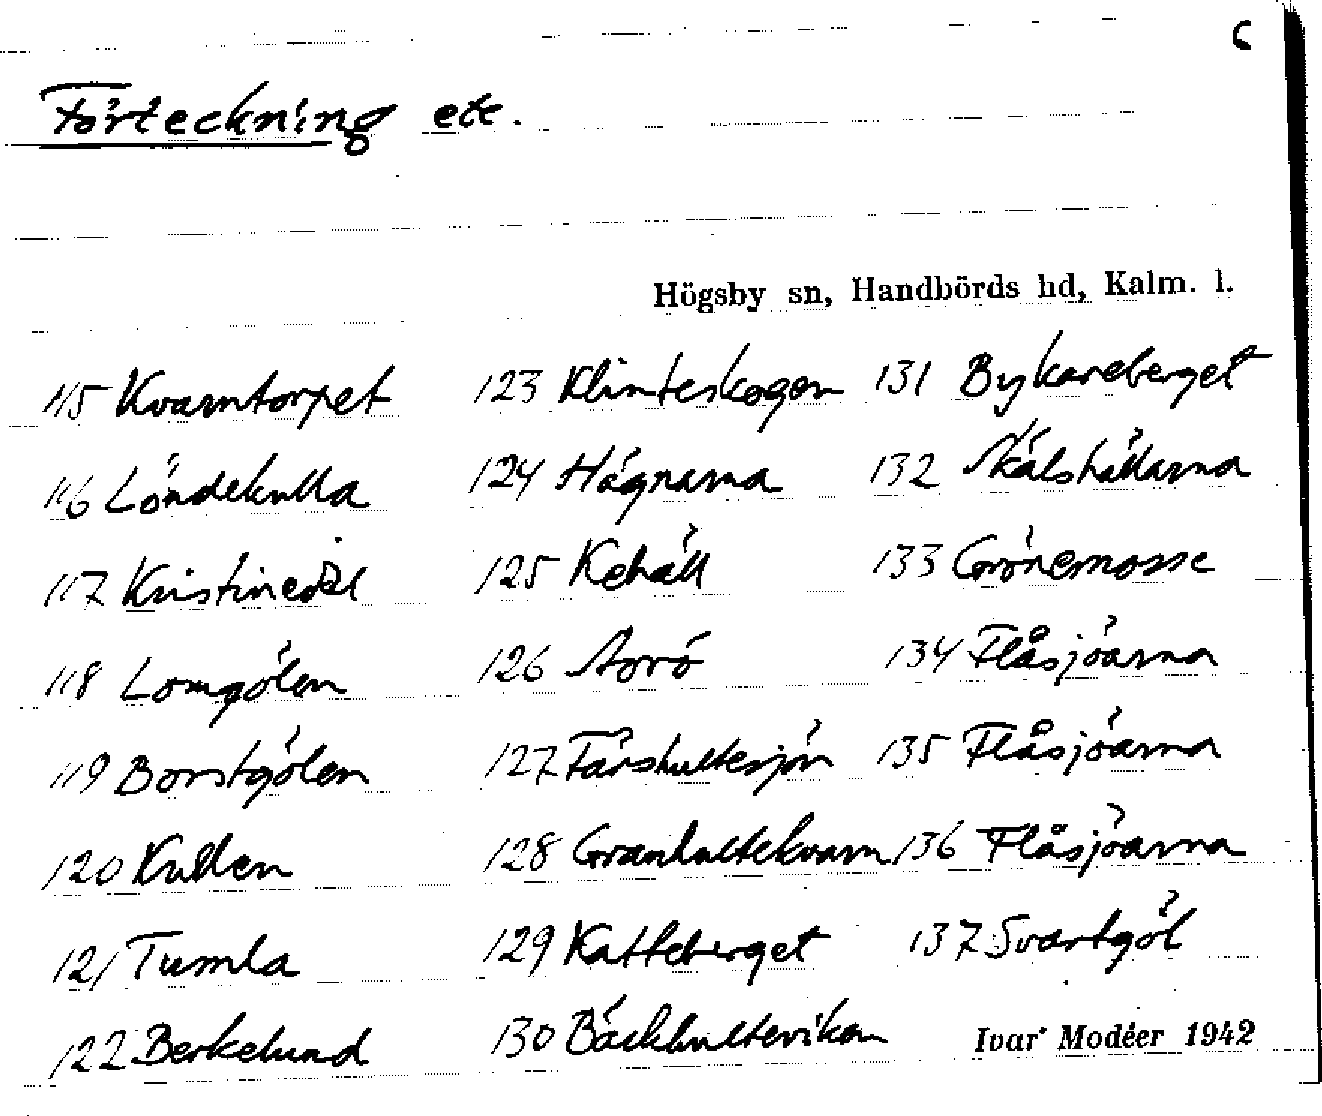 C
Förteckning etc.
Högsby sn, Handbörds hd, Kalm. l.
115 Kvarntorpet 123 Klinteskogen 131 Bykareberget
116 Löndekulla 124 Högnarna 132 Skälshällarna
117 Kristinedal 125 Kehäll 133 Grönemosse
118 Lomgölen 126 Arrö 134 Flåsjöarna
119 Borstgölen 127 Färshultesjön 135 Flåsjöarna
120 Kullen 128 Granhultekvarn 136 Flåsjöarna
121 Tumla 129 Katteberget 137 Svartgöl
122 Berkelund 130 Bäckhulteviken Ivar Modéer 1942